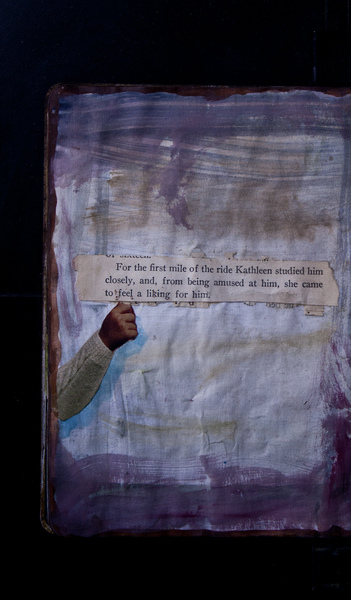 of sixteen.
For the first mile of the ride Kathleen studied him
closely, and, from being amused at him, she came
to feel a liking for him.